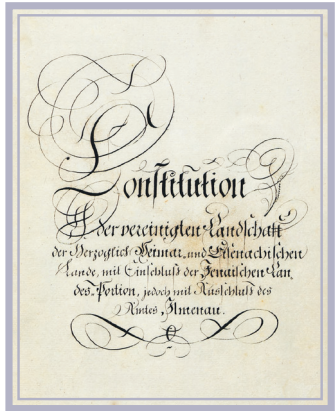 Constitution
der vereinigten Landschaft
der Herzoglich Weimar- und Eisenachischen
Lande, mit Einschluß der Jenaischen Lan
des-Portion, jedoch mit Ausschluß des
Amtes Ilmenau.